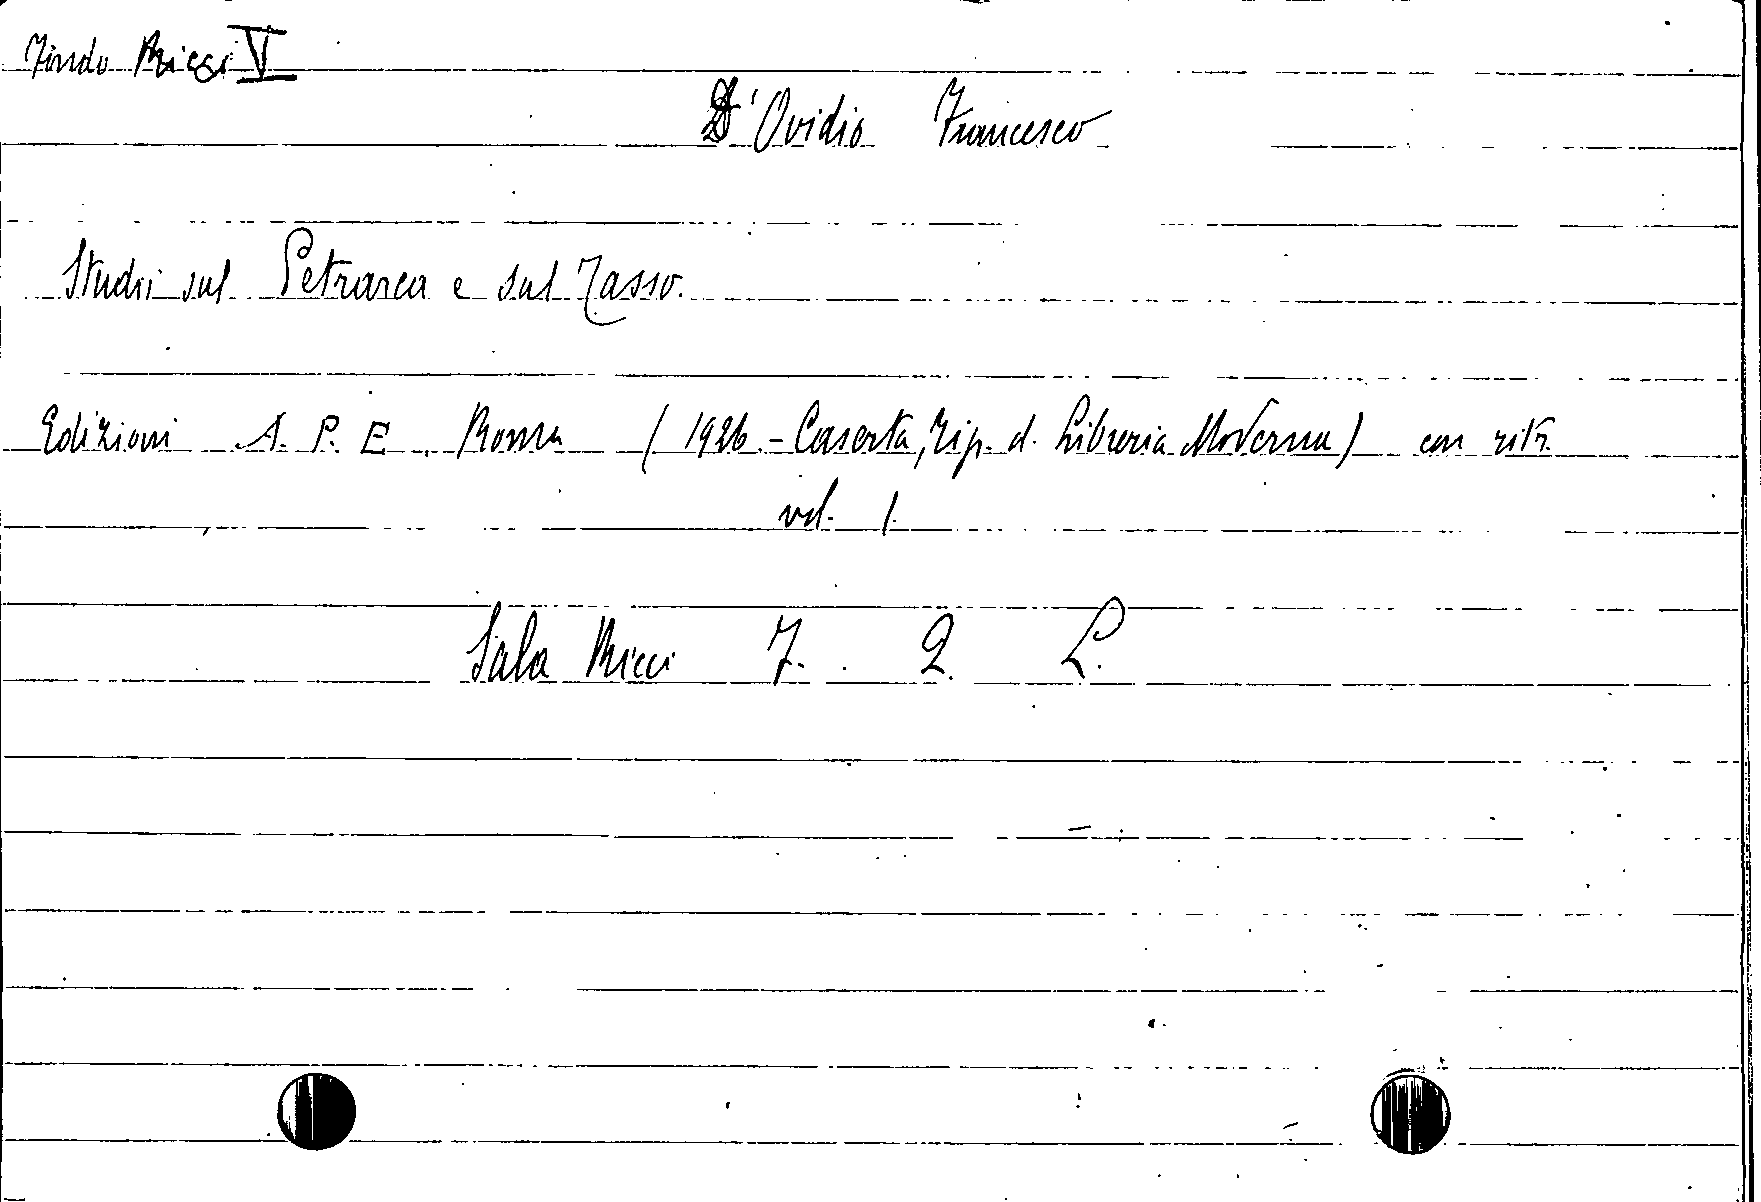 Fondo Ricci V
D'Ovidio Francesco
Studi sul Petrarca e sul Tasso.
Edizioni A. P. E. Roma (1926 - Caserta, Tip. d. Libreria Moderna) con ritr.
vol. 1.
Sala Ricci 7. 2. L.